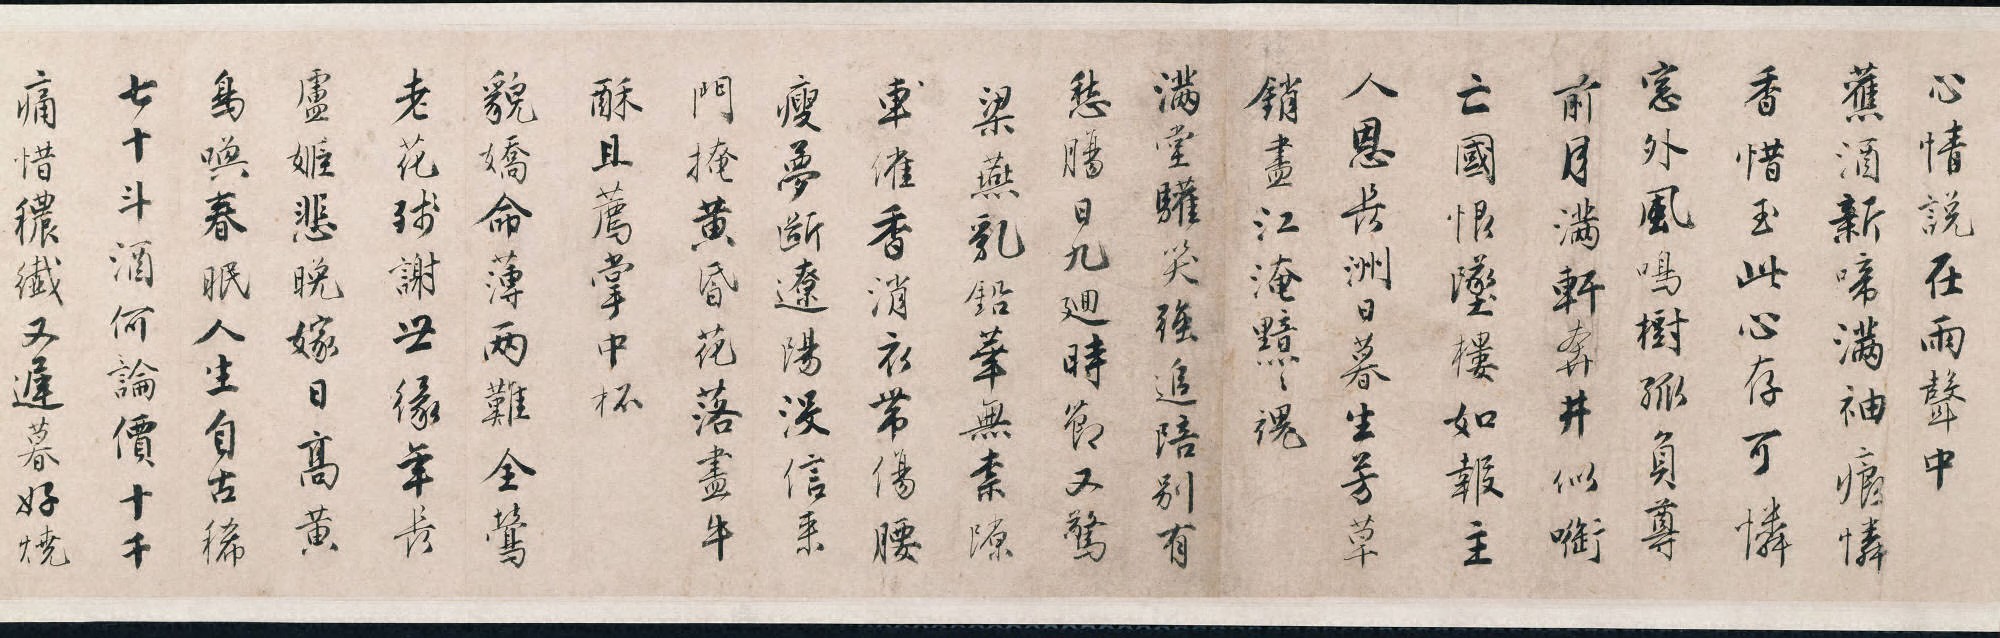 心情說在雨聲中
舊酒新啼滿袖痕憐
香惜玉此心存可憐
窓外風鳴樹孤負尊
前月滿軒奔井似啣
亡國恨墜樓如報主
人恩長洲日暮生芳草
銷盡江淹黯〻魂
滿堂驩笑強追陪別有
愁腸日九廻時節又驚
梁燕乳鉛華無柰隙
車催香消衣帶傷腰
瘦夢斷遼陽沒信來
門掩黃昏花落盡牛
酥且薦掌中杯
貌嬌命薄兩難全鶯
老花殘謝世緣年長
盧姬悲晚嫁日高黃
鳥喚春眠人生自古稀
七十斗酒何論價十千
痛惜穠纖又遲暮好燒